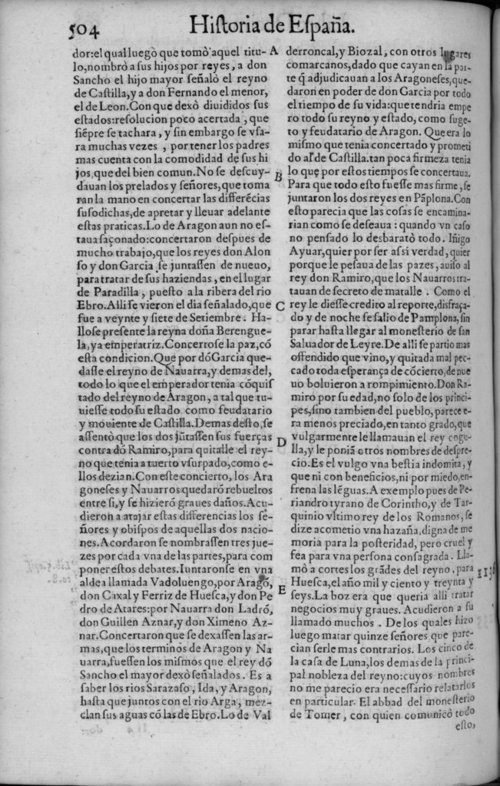 504 Historia de España.
dor: el qual luego que tomò aquel titu-
lo, nombrò a sus hijos por reyes, a don
Sancho el hijo mayor señalò el reyno
de Castilla, y a don Fernando el menor,
el de Leon. Con que dexò diuididos sus
estados: resolucion poco acertada, que
siēpre se tachara, y sin embargo se vsa-
ra muchas vezes, por tener los padres
mas cuenta con la comodidad de sus hi
jos, que del bien comun. No se descuy-
dauan los prelados y señores, que toma
ran la mano en concertar las differēcias
susodichas, de apretar y lleuar adelante
estas praticas. Lo de Aragon aun no es-
taua saçonado: concertaron despues de
mucho trabajo, que los reyes don Alon
so y don Garcia se juntassen de nueuo,
para tratar de sus haziendas, en el lugar
de Paradilla, puesto a la ribera del rio
Ebro. Alli se vieron el dia señalado, que
fue a veynte y siete de Setiembre. Ha-
llose presente la reyna doña Berengue-
la, ya emperatriz. Concertose la paz, cō
esta condicion. Que por dō Garcia que-
dasse el reyno de Nauarra, y demas del,
todo lo que el emperador tenia cōquis
tado del reyno de Aragon, a tal que tu-
uiesse todo su estado como feudatario
y mouiente de Castilla. Demas desto, se
assentò que los dos jūtassen sus fuerças
contra dō Ramiro, para quitalle el rey-
no que tenia a tuerto vsurpado, como e-
llos dezian. Con este concierto, los Ara
goneses y Nauarros quedarō rebueltos
entre si, y se hizierō graues daños. Acu-
dieron a atajar estas differencias los se-
ñores y obispos de aquellas dos nacio-
nes. Acordaron se nombrassen tres jue-
zes por cada vna de las partes, para com
poner estos debates. Iuntaronse en vna
aldea llamada Vadoluengo, por Aragō,
don Caxal y Ferriz de Huesca, y don Pe
dro de Atares: por Nauarra don Ladrō,
don Guillen Aznar, y don Ximeno Az-
nar. Concertaron que se dexassen las ar-
mas, que los terminos de Aragon y Na
uarra, fuessen los mismos que el rey dō
Sancho el mayor dexò señalados. Es a
saber los rios Sarazaso, Ida, y Aragon,
hasta que juntos con el rio Arga, mez-
clan sus aguas cō las de Ebro. Lo de Val
A
B
C
D
E
derroncal, y Biozal, con otros lugares
comarcanos, dado que cayan en la par-
te q̃ adjudicauan a los Aragoneses, que-
daron en poder de don Garcia por todo
el tiempo de su vida: que tendria empe
ro todo su reyno y estado, como suge-
to y feudatario de Aragon. Que era lo
mismo que tenia concertado y prometi
do al de Castilla. tan poca firmeza tenia
lo que por estos tiempos se concertaua.
Para que todo esto fuesse mas firme, se
juntaron los dos reyes en Pāplona. Con
esto parecia que las cosas se encamina-
rian como se deseaua: quando vn caso
no pensado lo desbaratò todo. Iñigo
Ayuar, quier por ser assi verdad, quier
porque le pesaua de las pazes, auiso al
rey don Ramiro, que los Nauarros tra-
tauan de secreto de matalle. Como el
rey le diesse credito al reporte, disfraça-
do y de noche se salio de Pamplona, sin
parar hasta llegar al monesterio de san
Saluador de Leyre. De alli se partio mas
offendido que vino, y quitada mal pec-
cado toda esperança de cōcierto, de nue
uo boluieron a rompimiento. Don Ra-
miro por su edad, no solo de los princi-
pes, sino tambien del pueblo, parece e-
ra menos preciado, en tanto grado, que
vulgarmente le llamauan el rey cogu-
lla, y le poniā otros nombres de despre-
cio. Es el vulgo vna bestia indomita, y
que ni con beneficios, ni por miedo, en-
frena las lēguas. A exemplo pues de Pe-
riandro tyrano de Corintho, y de Tar-
quinio vltimo rey de los Romanos, se
dize acometio vna hazaña, digna de me
moria para la posteridad, pero cruel y
fea para vna persona consagrada. Lla-
mò a cortes los grādes del reyno, para
Huesca, el año mil y ciento y treynta y
seys. La boz era que queria alli tratar
negocios muy graues. Acudieron a su
llamado muchos. De los quales hizo
luego matar quinze señores que pare-
cian serle mas contrarios. Los cinco de
la casa de Luna, los demas de la princi-
pal nobleza del reyno: cuyos nombres
no me parecio era necessario relatarlos
en particular. El abbad del monesterio
de Tomer, con quien comunicò todo
esto,